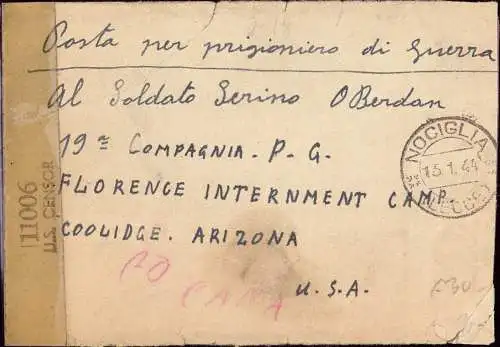 Posta per prigioniero di Guerra
Al Soldato Serino OBerdan
19ᵃ COMPAGNIA. P. G.
FLORENCE INTERNMENT CAMP.
COOLIDGE. ARIZONA
U.S.A.
NOCIGLIA
15.1.44
(LECCE)
11006
U.S. CENSOR